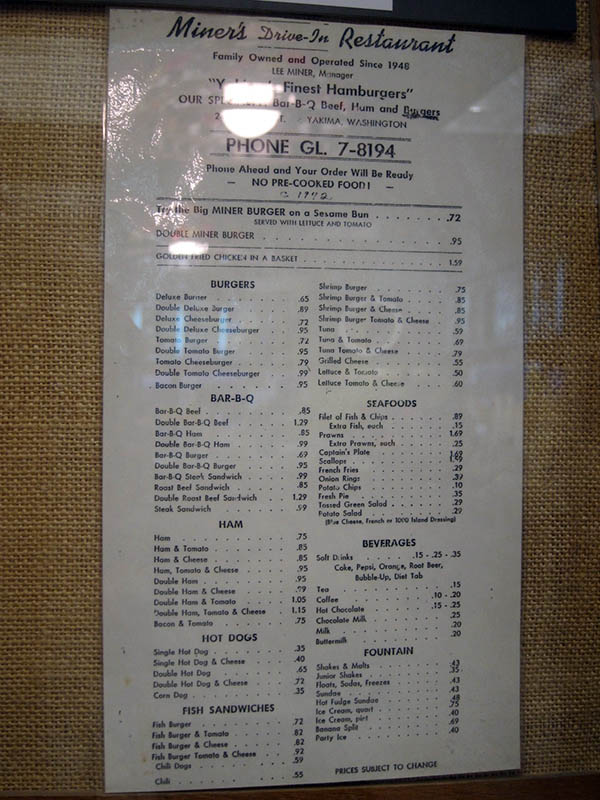 Miner's Drive-In Restaurant
Family Owned and Operated Since 1948
LEE MINER, Manager
Finest Hamburgers"
OUR Bar-B-Q Beef, Ham and Burgers
YAKIMA, WASHINGTON
PHONE GL. 7-8194
Phone Ahead and Your Order Will Be Ready
— NO PRE-COOKED FOOD! —
Try the Big MINER BURGER on a Sesame Bun . . . . . . . .72
SERVED WITH LETTUCE AND TOMATO
DOUBLE MINER BURGER . . . . . . . .95
GOLDEN FRIED CHICKEN IN A BASKET . . . . . . . 1.59
BURGERS
Deluxe Burger . . . . .65
Double Deluxe Burger . . . .89
Deluxe Cheeseburger . . . .72
Double Deluxe Cheeseburger . . .95
Tomato Burger . . . . .72
Double Tomato Burger . . . .95
Tomato Cheeseburger . . . .79
Double Tomato Cheeseburger . . .99
Bacon Burger . . . . .95
BAR-B-Q
Bar-B-Q Beef . . . . .85
Double Bar-B-Q Beef . . . . 1.29
Bar-B-Q Ham . . . . .85
Double Bar-B-Q Ham . . . . .99
Bar-B-Q Burger . . . . .69
Double Bar-B-Q Burger . . . .95
Bar-B-Q Steak Sandwich . . . .99
Roast Beef Sandwich . . . . .85
Double Roast Beef Sandwich . . . 1.29
Steak Sandwich . . . . .59
HAM
Ham . . . . . .75
Ham & Tomato . . . . .85
Ham & Cheese . . . . .85
Ham, Tomato & Cheese . . . .95
Double Ham . . . . .95
Double Ham & Cheese . . . .99
Double Ham & Tomato . . . . 1.05
Double Ham, Tomato & Cheese . . . 1.15
Bacon & Tomato . . . . .75
HOT DOGS
Single Hot Dog . . . . .35
Single Hot Dog & Cheese . . . .40
Double Hot Dog . . . . .65
Double Hot Dog & Cheese . . . .72
Corn Dog . . . . . .35
FISH SANDWICHES
Fish Burger . . . . .72
Fish Burger & Tomato . . . .82
Fish Burger & Cheese . . . .82
Fish Burger Tomato & Cheese . . . .92
Chili Dogs . . . . .59
Chili . . . . . .55
Shrimp Burger . . . . .75
Shrimp Burger & Tomato . . . .85
Shrimp Burger & Cheese . . . .85
Shrimp Burger Tomato & Cheese . . .95
Tuna . . . . . .59
Tuna & Tomato . . . . .69
Tuna Tomato & Cheese . . . .79
Grilled Cheese . . . . .55
Lettuce & Tomato . . . . .50
Lettuce Tomato & Cheese . . . .60
SEAFOODS
Filet of Fish & Chips . . . . .89
Extra Fish, each . . . . .15
Prawns . . . . . 1.69
Extra Prawns, each . . . .25
Captain's Plate . . . . 1.69
Scallops . . . .
French Fries . . . . .29
Onion Rings . . . . .39
Potato Chips . . . . .10
Fresh Pie . . . . .35
Tossed Green Salad . . . . .29
Potato Salad . . . . .29
(Blue Cheese, French or 1000 Island Dressing)
BEVERAGES
Soft Drinks . . . . .15 - .25 - .35
Coke, Pepsi, Orange, Root Beer,
Bubble-Up, Diet Tab
Tea . . . . . .15
Coffee . . . . .10 - .20
Hot Chocolate . . . . .15 - .25
Chocolate Milk . . . . .25
Milk . . . . . .20
Buttermilk . . . . .20
FOUNTAIN
Shakes & Malts . . . . .43
Junior Shakes . . . . .35
Floats, Sodas, Freezes . . . .43
Sundae . . . . . .43
Hot Fudge Sundae . . . . .48
Ice Cream, quart . . . . .75
Ice Cream, pint . . . . .40
Banana Split . . . . .69
Party Ice . . . . .40
PRICES SUBJECT TO CHANGE